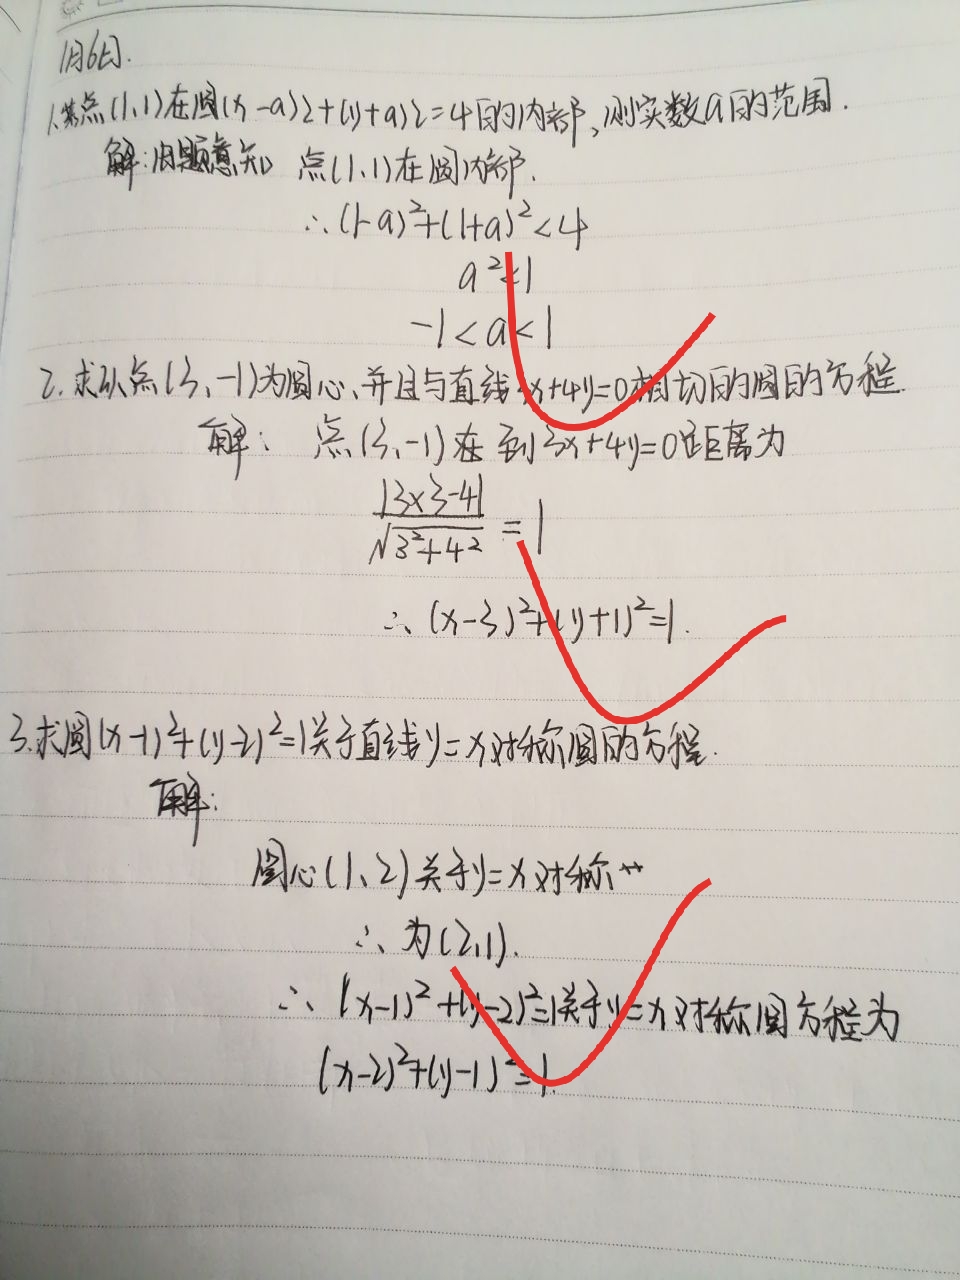 1月6日.
1.若点(1,1)在圆(x-a)2+(y+a)2=4的内部,则实数a的范围.
解:由题意知 点(1,1)在圆内部.
∴(1-a)²+(1+a)²<4
a²<1
-1<a<1
2.求以点(3,-1)为圆心,并且与直线3x+4y=0相切的圆的方程.
解: 点(3,-1)在到3x+4y=0距离为
|3×3-4|/√3²+4² = 1
∴(x-3)²+(y+1)²=1.
3.求圆(x-1)²+(y-2)²=1关于直线y=x对称圆的方程.
解:
圆心(1,2)关于y=x对称
∴为(2,1).
∴(x-1)²+(y-2)²=1关于y=x对称圆方程为
(x-2)²+(y-1)²=1.